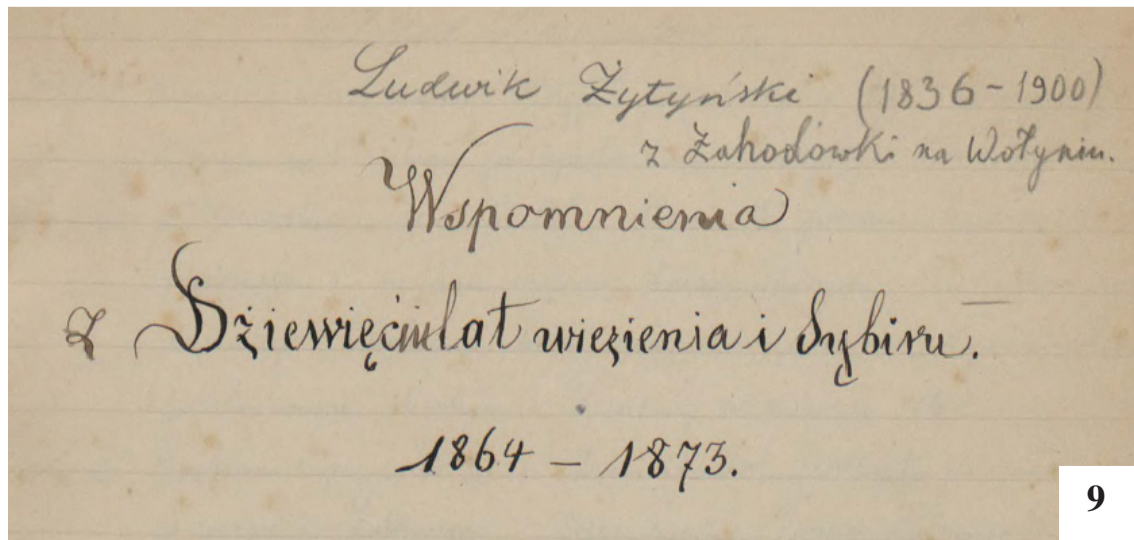 Ludwik Żytyński (1836-1900)
z Zahodówki na Wołyniu.
Wspomnienia
z Dziewięciulat więzienia i Sybiru.
1864 – 1873.
9